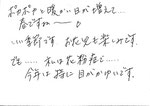 ポカポカと暖かい日が増えて…
春ですね〜〜
いい季節です。お花見も楽しみです。
でも……私は花粉症で……
今年は特に目がかゆいです。